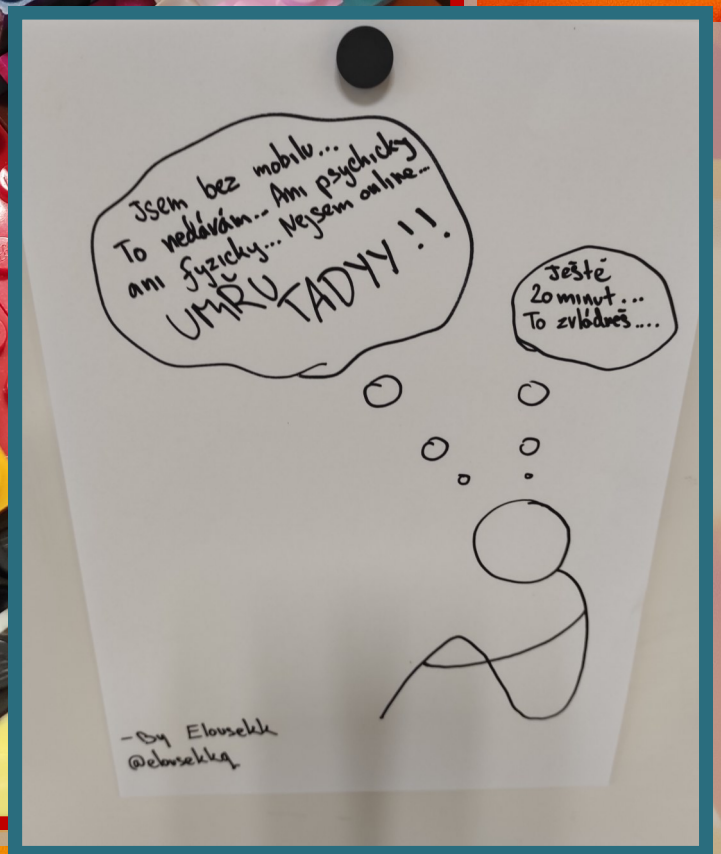 Jsem bez mobilu...
To nedávám... Ani psychicky
ani fyzicky... Nejsem online...
UMŘU TADYY!!
Ještě
20 minut...
To zvládneš....
-By Elousekk
@elousekkq